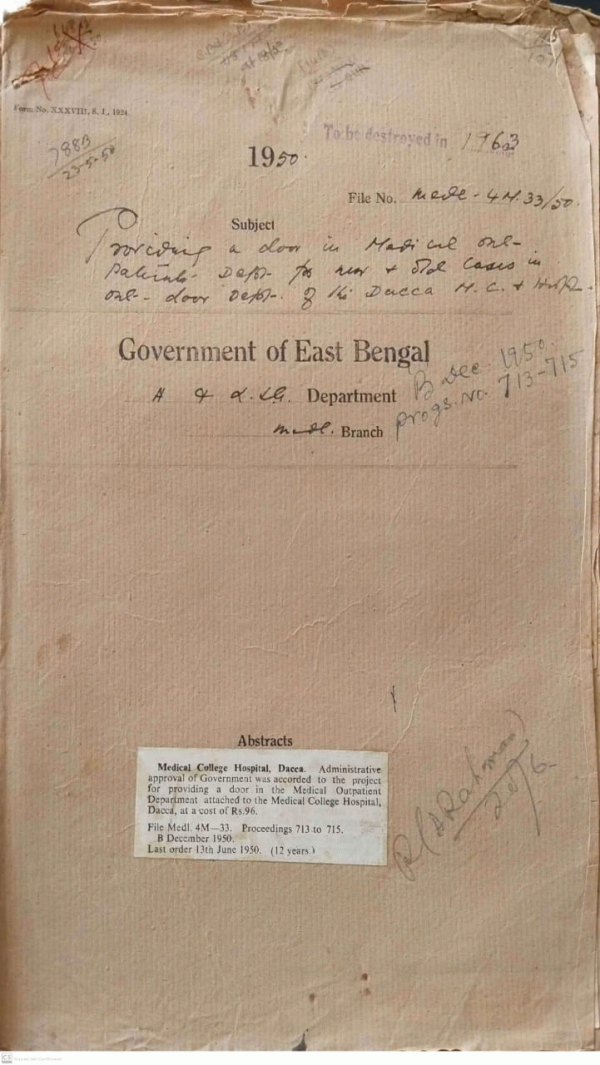 Form No. XXXVIII, S. I., 1924.
7883
23-5-50
To be destroyed in 1963
1950.
File No. Medl - 4M.33/50.
Subject
Providing a door in Medical out-
Patients Dept. for new & old cases in
out-door Dept. of the Dacca M. C. & Hospl.
Government of East Bengal
B Dec. 1950.
H & L.S.G. Department
progs. no. 713-715
Medl. Branch
Abstracts
Medical College Hospital, Dacca. Administrative
approval of Government was accorded to the project
for providing a door in the Medical Outpatient
Department attached to the Medical College Hospital,
Dacca, at a cost of Rs.96.
File Medl. 4M—33. Proceedings 713 to 715.
B December 1950.
Last order 13th June 1950. (12 years.)
R (A Rahman)
20/6